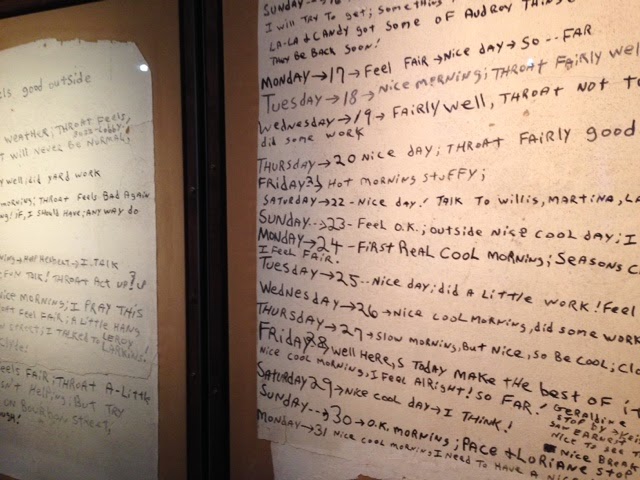 els good outside
WEATHER; THROAT FEELS,
WILL NEVER BE NORMAL!
well; did yard work
morning; THROAT feels Bad Again
if, I should have; any way do
I TALK
FUN TALK! THROAT ACT UP?
NICE MORNING; I PRAY THIS
FEEL FAIR; A Little HANG
I TALKED TO LEROY
feels FAIR; THROAT A-Little
HELPING; BUT TRY
ON BOURBON STREET,
SUNDAY
I will TRY To get; something
LA-LA & CANDY got some of AUDROY THINGS
THEY BE BACK SOON!
MONDAY→17→Feel FAIR→Nice day→so--FAR
Tuesday→18→Nice MORNING; THROAT FAIRLY well
Wednesday→19→FAIRLY well, THROAT NOT TO
did some work
THURSDAY→20 Nice day; THROAT FAIRLY good
FRIDAY 21 Hot MORNING STUFFY;
SATURDAY→22-Nice day! TALK To Willis, MARTINA, LA
SUNDAY-->23-Feel O.K.; outside Nice cool day; I
MONDAY→24-FIRST REAL COOL MORNING; SEASONS C
I FEEL FAIR!
Tuesday→25--Nice day; did A LITTLE WORK! Feel
WEDNESDAY→26→Nice cool MORNING, did some work
THURSDAY→27→slow MORNING, But Nice, so Be cool; Clo
FRIDAY 28, well HERE,S TODAY MAKE the BEST of iT
Nice cool morning, I feel Alright! so FAR!
GERALDINE
STOP By
SAW EARNEST
Nice To see T
SATURDAY 29→Nice cool day→I THINK!
Nice BREAK
SUNDAY-->30→O.K. MORNING; PACE & LORIANE STOP
MONDAY→31 Nice cool morning; I Need To HAVE A NICE